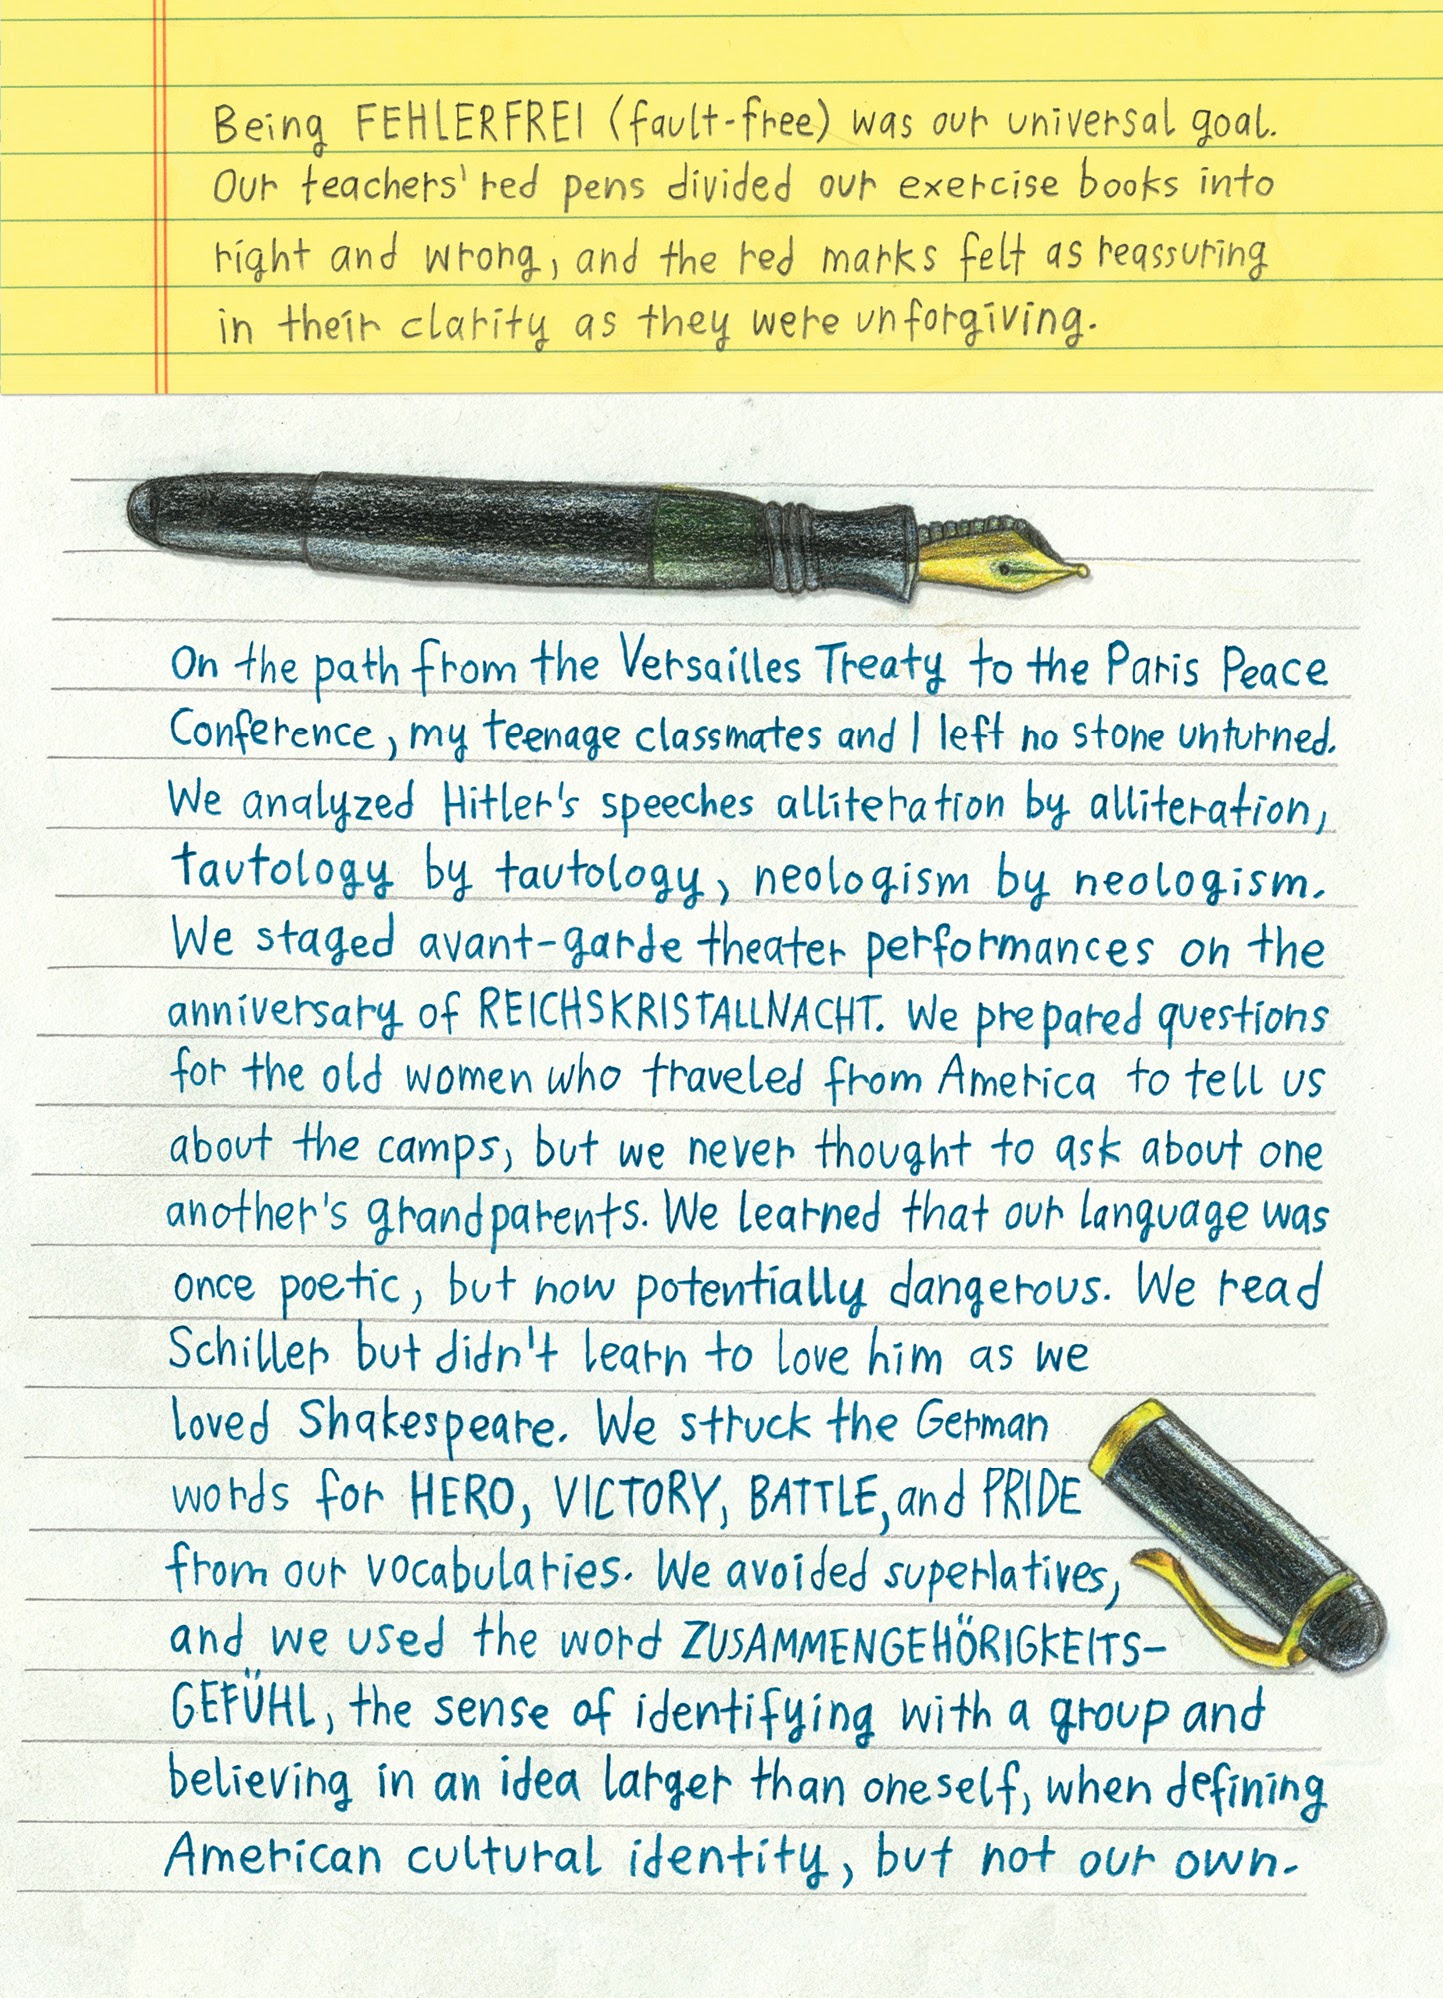 Being FEHLERFREI (fault-free) was our universal goal.
Our teachers' red pens divided our exercise books into
right and wrong, and the red marks felt as reassuring
in their clarity as they were unforgiving.
On the path from the Versailles Treaty to the Paris Peace
Conference, my teenage classmates and I left no stone unturned.
We analyzed Hitler's speeches alliteration by alliteration,
tautology by tautology, neologism by neologism.
We staged avant-garde theater performances on the
anniversary of REICHSKRISTALLNACHT. We prepared questions
for the old women who traveled from America to tell us
about the camps, but we never thought to ask about one
another's grandparents. We learned that our language was
once poetic, but now potentially dangerous. We read
Schiller but didn't learn to love him as we
loved Shakespeare. We struck the German
words for HERO, VICTORY, BATTLE, and PRIDE
from our vocabularies. We avoided superlatives,
and we used the word ZUSAMMENGEHÖRIGKEITS-
GEFÜHL, the sense of identifying with a group and
believing in an idea larger than oneself, when defining
American cultural identity, but not our own.